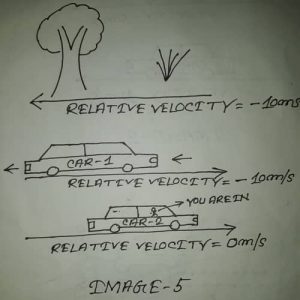 RELATIVE VELOCITY = -10m/s
CAR-1
RELATIVE VELOCITY = -10m/s
YOU ARE IN
CAR-2
RELATIVE VELOCITY = 0m/s
IMAGE-5